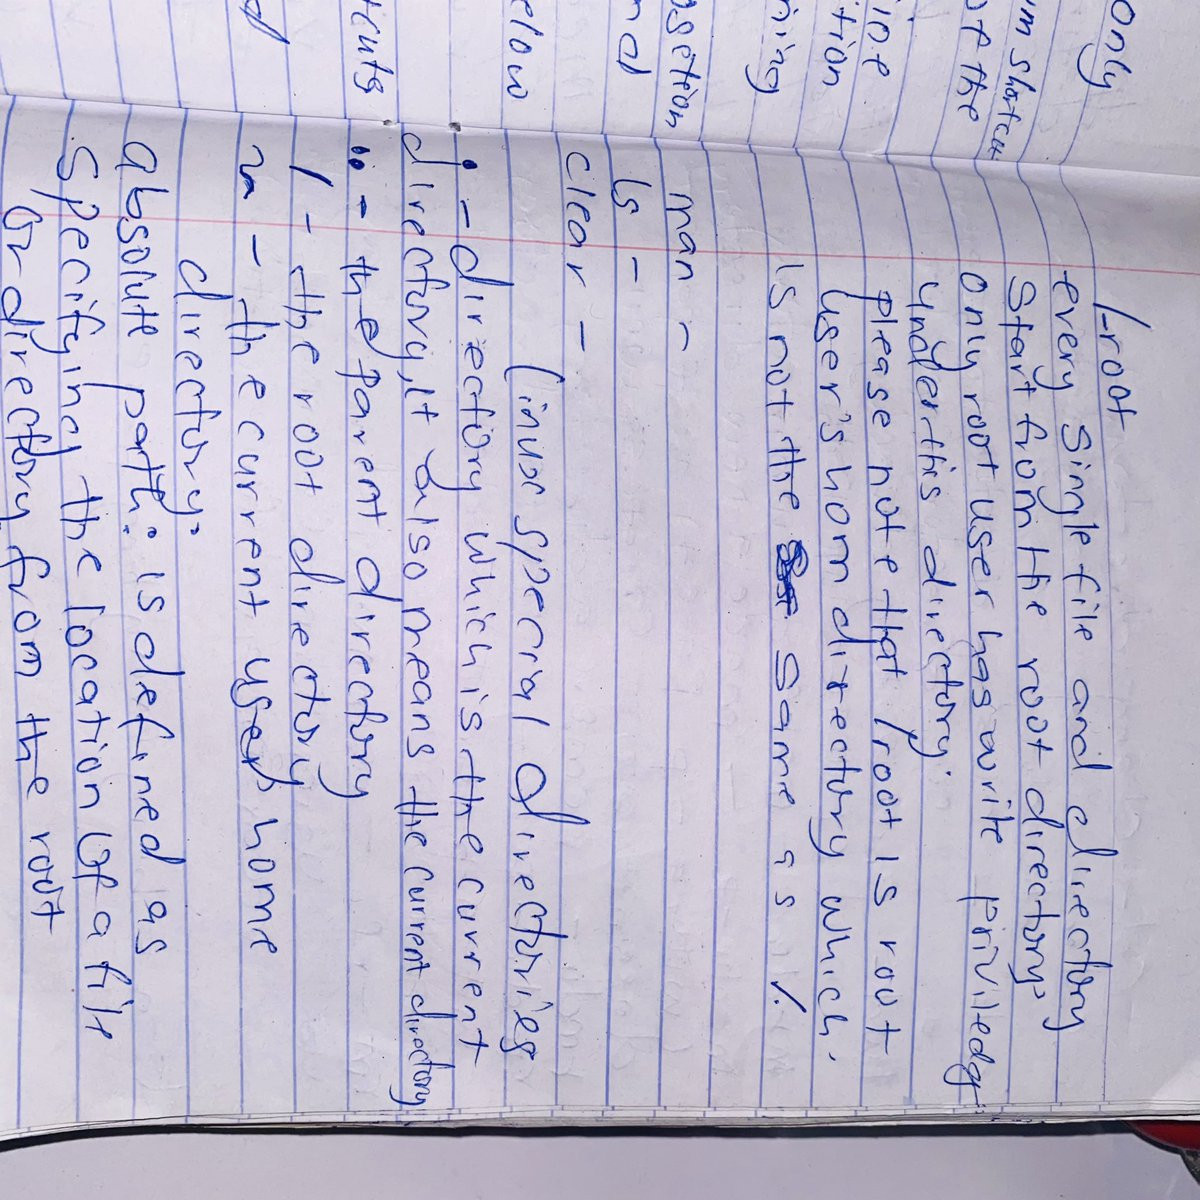 only
um shortcu
of the
ine
ition
ning
osetion
nd
elow
ticuts
d
/-root
every single file and directory
start from the root directory.
only root user has write priviledge
under this directory.
please note that /root is root
user's hom directory which.
is not the same as /.
man -
ls -
clear -
linux special directories
. - directory which is the current
directory, it also means the current directory
.. - the parent directory
/ - the root directory
~ - the current user's home
directory.
absolute path: is defined as
specifying the location of a file
or directory from the root